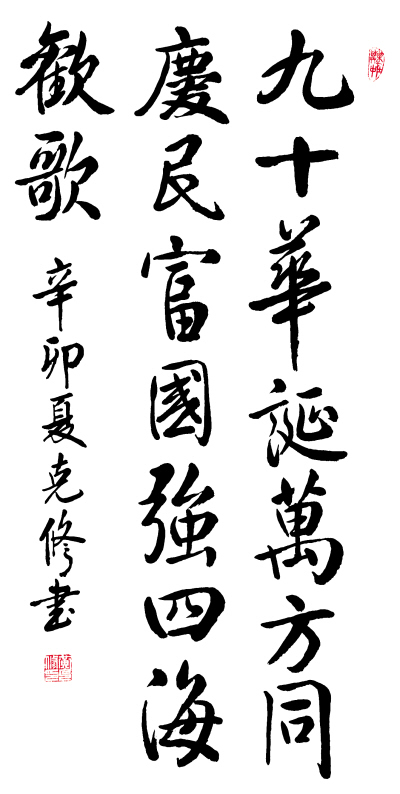 九十華誕萬方同
慶民富國強四海
歡歌
辛卯夏克修書